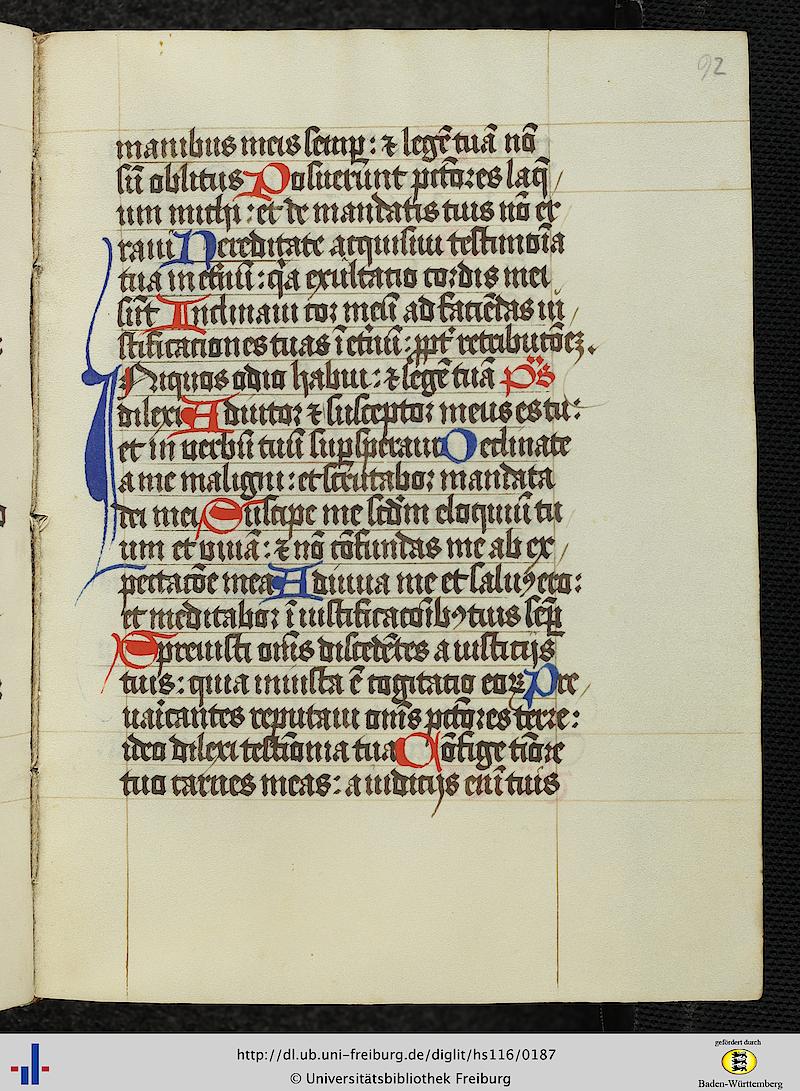 92
manibus meis semꝑ : ⁊ legē tuā nō
sū oblitus Posuerunt pctōres laq̄
um michi : et de mandatis tuis nō er
raui Hereditate acquisiui testimoīa
tua in etnū : q̄a exultatio cordis mei
sūt Inclinaui cor meū ad faciēdas iu
stificationes tuas ī etnū : ꝓpt̄ retributōeʒ.
Iniquos odio habui : ⁊ legē tuā ps̄
dilexi Adiutor ⁊ susceptor meus es tu :
et in verbū tuū suꝑsperaui Declinate
a me maligni : et scrutabor mandata
dei mei Suscipe me scdm̄ eloquiū tu
um et viuā : ⁊ nō cōfundas me ab ex
pectacōe mea Adiuua me et saluꝯ ero :
et meditabor ī iustificacōībꝯ tuis semꝑ
Spreuisti om̄s discedētes a iusticijs
tuis : quia iniusta ē cogitatio eoꝝ Pre
uaricantes reputaui om̄s pctōres terre :
ideo dilexi testīonia tua Cōfige tīore
tuo carnes meas : a iudicijs enī tuis
http://dl.ub.uni-freiburg.de/diglit/hs116/0187
© Universitätsbibliothek Freiburg
gefördert durch
Baden-Württemberg